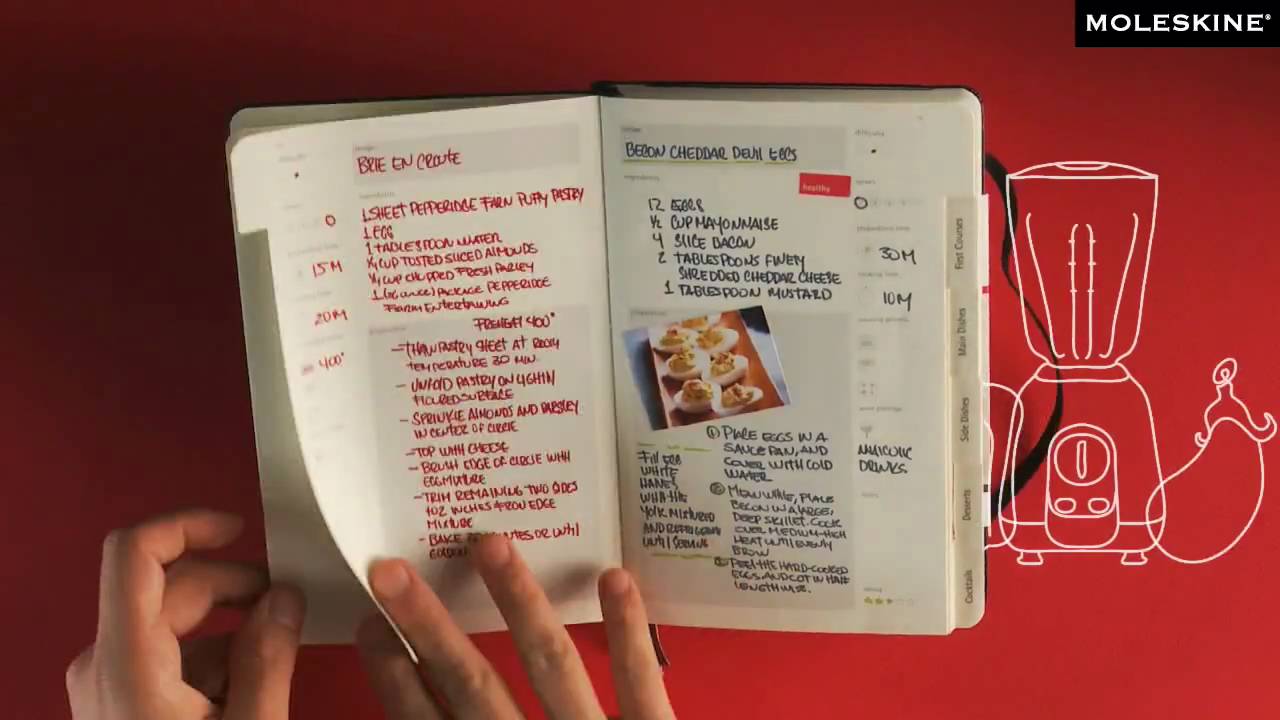 MOLESKINE®
BRIE EN CROUTE
1 SHEET PEPPERIDGE FARN PUFFY PASTRY
1 EGG
1 TABLESPOON WATER
CUP TOSTED SLICED ALMONDS
CUP CHOPPED FRESH PARLEY
PACKAGE PEPPERIDGE
FARM ENTERTAINING
15 M
20 M
400°
PREHEAT 400°
PASTRY SHEET AT ROOM
TEMPERATURE 30 MIN.
- UNFOLD PASTRY ON LIGHTLY
FLOURED SURFACE
- SPRINKLE ALMONDS AND PARSLEY
IN CENTER OF CIRCLE
- TOP WITH CHEESE
- BRUSH EDGE OF CIRCLE WITH
EGG MIXTURE
- TRIM REMAINING TWO SIDES
INCHES FROM EDGE
MIXTURE
- BAKE OR UNTIL
BECON CHEDDAR DEVIL EGGS
healthy
12 EGGS
½ CUP MAYONNAISE
4 SLICE BACON
2 TABLESPOONS FINELY
SHREDDED CHEDDAR CHEESE
1 TABLESPOON MUSTARD
30 M
10 M
① PLACE EGGS IN A
SAUCE PAN, AND
COVER WITH COLD
WATER
② MEANWHILE, PLACE
BECON IN A LARGE,
DEEP SKILLET. COOK
OVER MEDIUM-HIGH
HEAT UNTIL EVENLY
BROW
PEEL THE HARD-COOKED
EGGS, AND CUT IN HALF
LENGTHWISE.
FILL EGG
WHITE
WITH THE
YOLK MIXTURED
AND REFRIGERATE
UNTIL SERVING
DRINKS
First Courses
Main Dishes
Side Dishes
Desserts
Cocktails